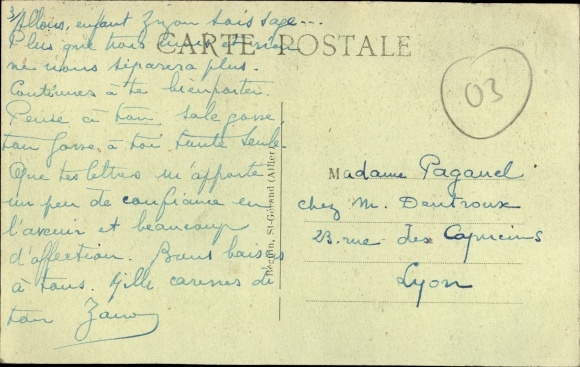 3/ Allons, enfant Zizou sois sage...
Plus que trois lunes et rien
ne nous séparera plus.
Continues à te bien porter.
Pense à ton sale gosse,
ton Gosse, à toi toute seule.
Que tes lettres m'apporte
un peu de confiance en
l'avenir et beaucoup
d'affection. Bons baisers
à tous. Mille caresses de
ton
CARTE POSTALE
03
Béguin, St-Gérand (Allier)
Madame Paganel
chez M. Dentroux
23. rue des Capucins
Lyon